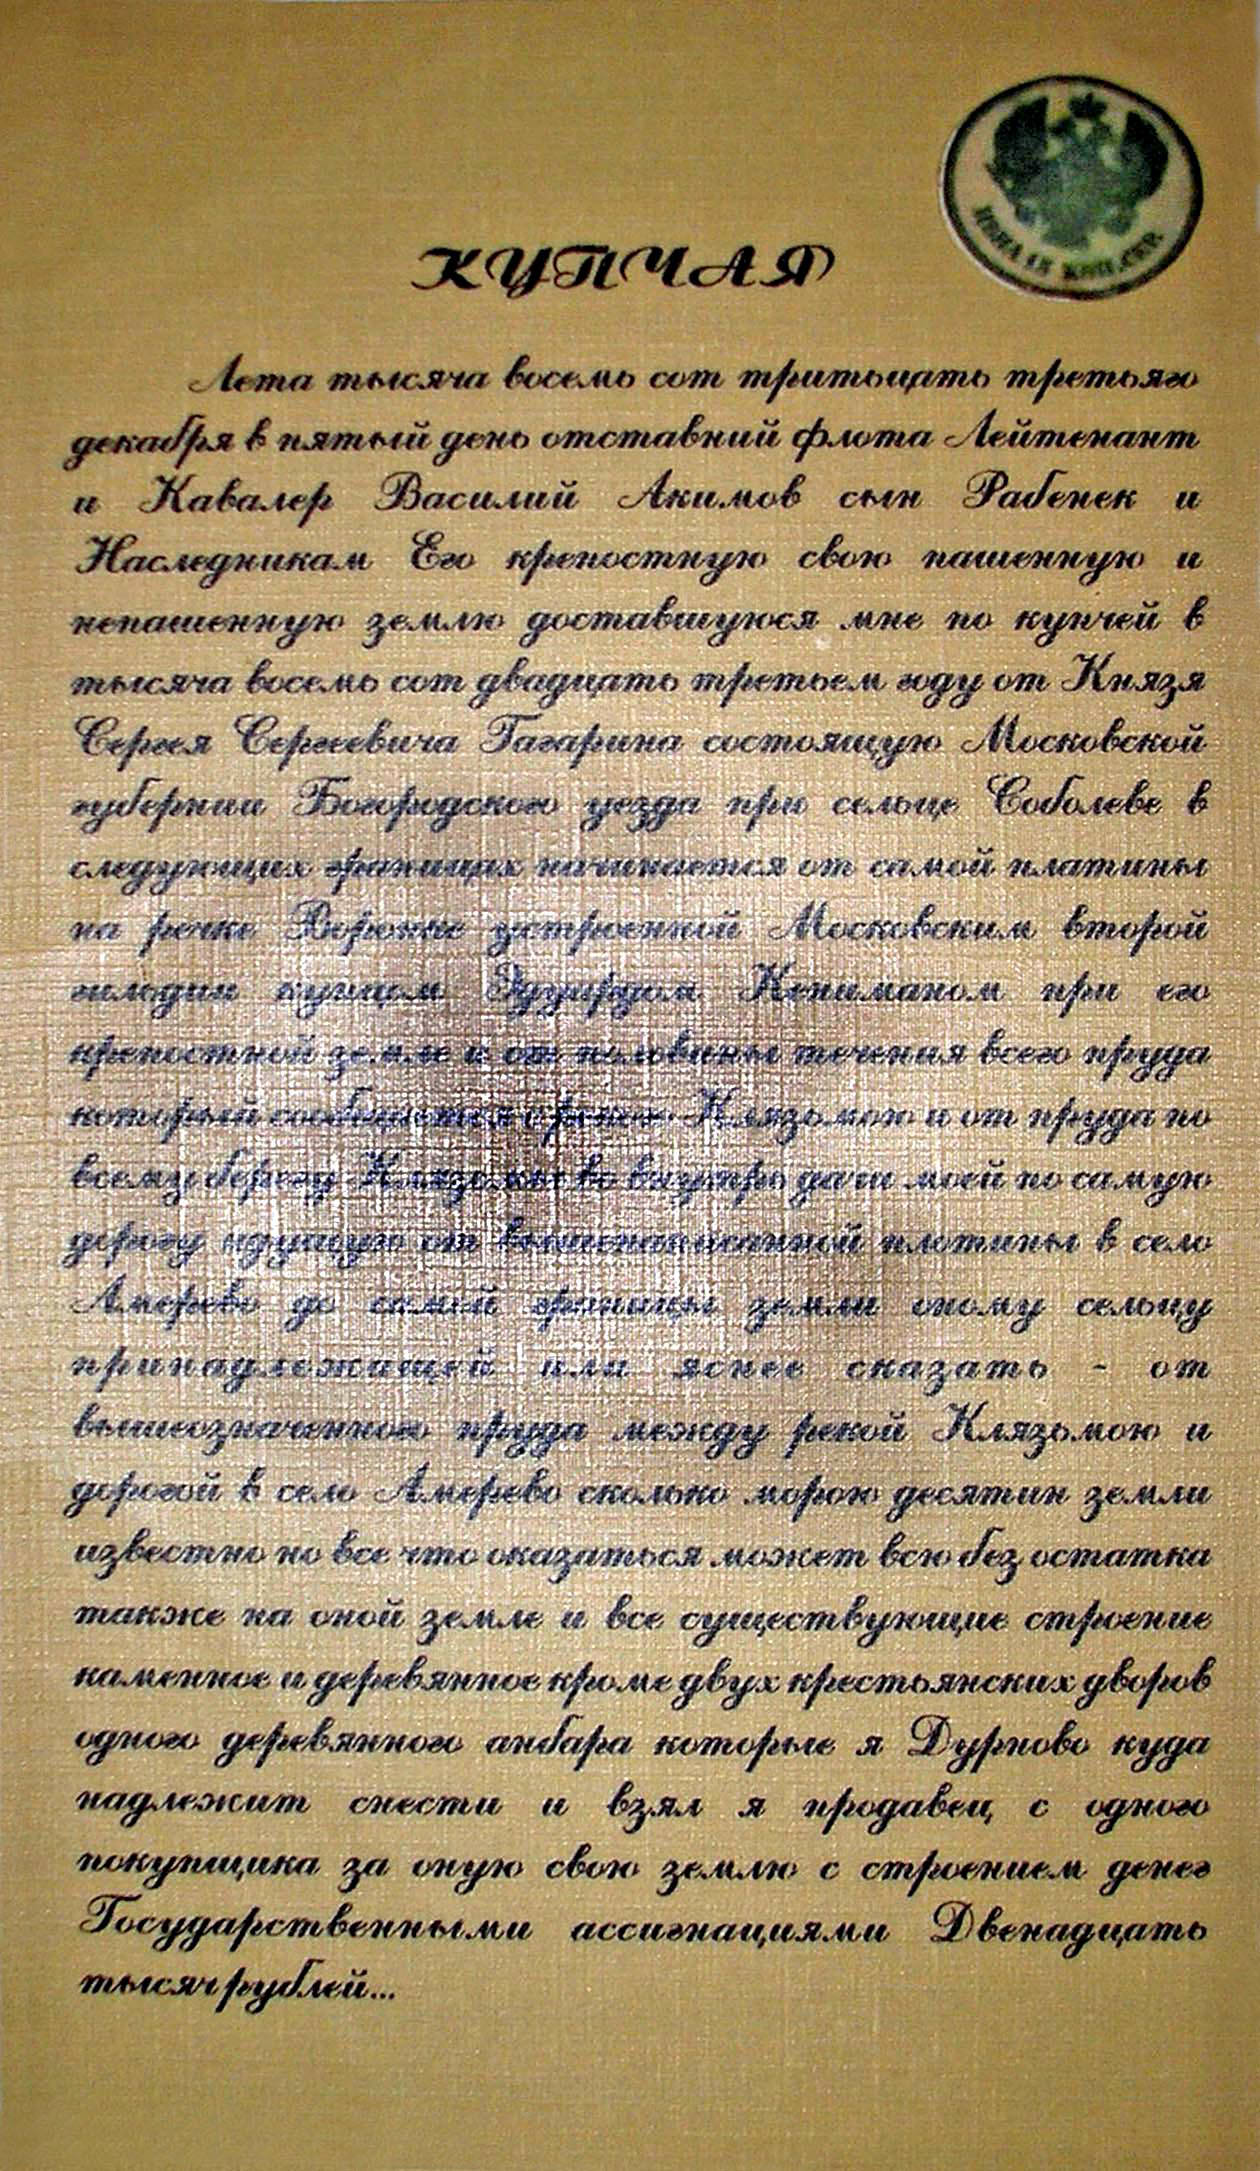 КУПЧАЯ
Лета тысяча восемь сот тритьцать третьяго
декабря в пятый день отставний флота Лейтенант
и Кавалер Василий Акимов сын Рабенек и
Наследникам Его крепостную свою пашенную и
непашенную землю доставшуюся мне по купчей в
тысяча восемь сот двадцать третьем году от Князя
Сергея Сергеевича Гагарина состоящую Московской
губернии Богородского уезда при сельце Соболеве в
следующих границах начинается от самой платины
на речке устроенной Московским второй
гильдии купцом Эдуардом Кениманом при его
крепостной земле и от половины течения всего пруда
который сообщается с рекою Клязьмою и от пруда по
всему берегу Клязьмы во внутрь дачи моей по самую
дорогу идущую от вышенаписанной плотины в село
Амерево до самой границы земли оному сельцу
принадлежащей или яснее сказать - от
вышеозначенного пруда между рекой Клязьмою и
дорогой в село Амерево сколько морою десятин земли
известно но все что оказаться может всю без остатка
также на оной земле и все существующие строение
каменное и деревянное кроме двух крестьянских дворов
одного деревянного анбара которые я Дурново куда
надлежит снести и взял я продавец с одного
покупщика за оную свою землю с строением денег
Государственными ассигнациями Двенадцать
тысяч рублей...